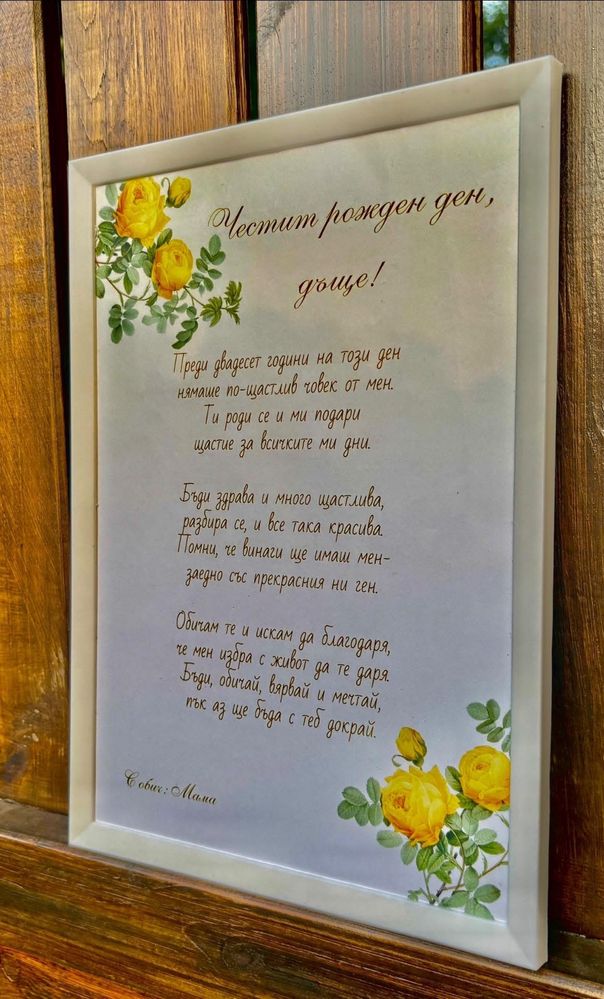 Честит рожден ден,
дъще!
Преди двадесет години на този ден
нямаше по-щастлив човек от мен.
Ти роди се и ми подари
щастие за всичките ми дни.
Бъди здрава и много щастлива,
разбира се, и все така красива.
Помни, че винаги ще имаш мен-
заедно със прекрасния ни ген.
Обичам те и искам да благодаря,
че мен избра с живот да те даря.
Бъди, обичай, вярвай и мечтай,
пък аз ще бъда с теб докрай.
С обич: Мама